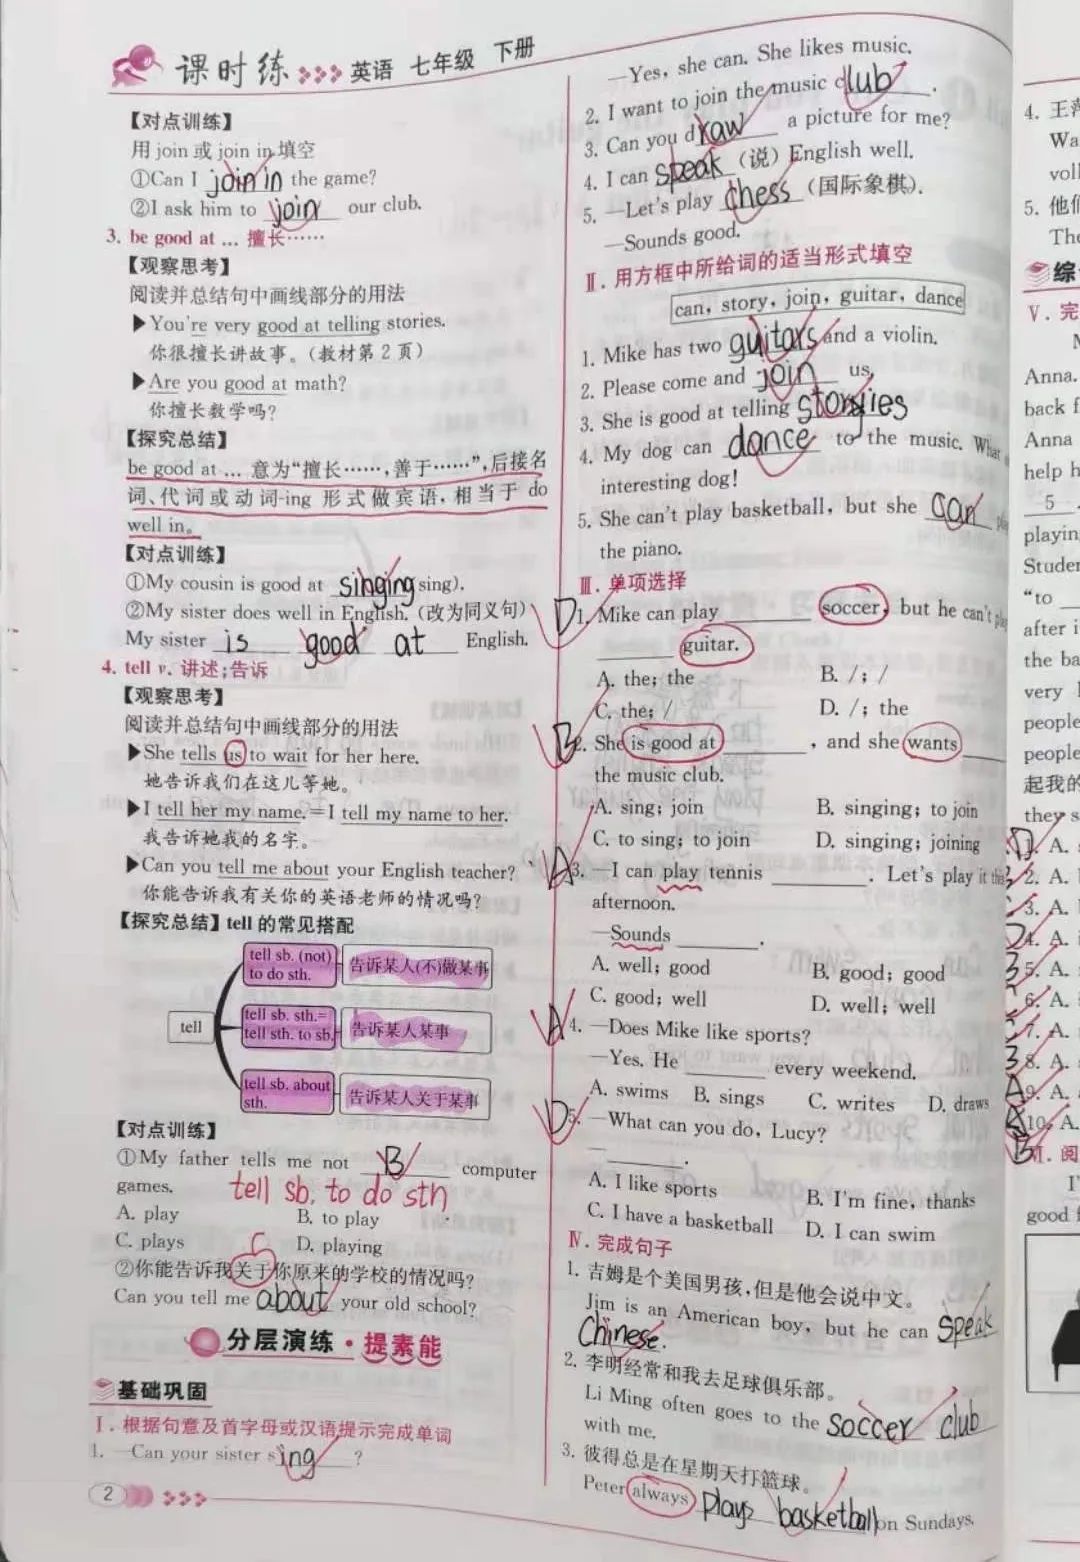 课时练 英语 七年级 下册
【对点训练】
用 join 或 join in 填空
①Can I join in the game?
②I ask him to join our club.
3. be good at … 擅长……
【观察思考】
阅读并总结句中画线部分的用法
▶You're very good at telling stories.
你很擅长讲故事。(教材第2页)
▶Are you good at math?
你擅长数学吗?
【探究总结】
be good at … 意为“擅长……,善于……”,后接名
词、代词或动词-ing 形式做宾语,相当于 do
well in。
【对点训练】
①My cousin is good at singing sing).
②My sister does well in English. (改为同义句)
My sister is good at English.
4. tell v. 讲述;告诉
【观察思考】
阅读并总结句中画线部分的用法
▶She tells us to wait for her here.
她告诉我们在这儿等她。
▶I tell her my name.=I tell my name to her.
我告诉她我的名字。
▶Can you tell me about your English teacher?
你能告诉我有关你的英语老师的情况吗?
【探究总结】tell 的常见搭配
tell
tell sb. (not)
to do sth.
告诉某人(不)做某事
tell sb. sth.=
tell sth. to sb.
告诉某人某事
tell sb. about
sth.
告诉某人关于某事
【对点训练】
①My father tells me not B computer
games. tell sb. to do sth
A. play B. to play
C. plays D. playing
②你能告诉我关于你原来的学校的情况吗?
Can you tell me about your old school?
分层演练·提素能
基础巩固
Ⅰ. 根据句意及首字母或汉语提示完成单词
1. —Can your sister sing ?
2
—Yes, she can. She likes music.
2. I want to join the music club.
3. Can you draw a picture for me?
4. I can speak (说) English well.
5. —Let's play chess (国际象棋).
—Sounds good.
Ⅱ. 用方框中所给词的适当形式填空
can, story, join, guitar, dance
1. Mike has two guitars and a violin.
2. Please come and join us.
3. She is good at telling stories
4. My dog can dance to the music. What
interesting dog!
5. She can't play basketball, but she can
the piano.
Ⅲ. 单项选择
D 1. Mike can play soccer, but he can't
guitar.
A. the; the B. /; /
C. the; / D. /; the
B 2. She is good at , and she wants
the music club.
A. sing; join B. singing; to join
C. to sing; to join D. singing; joining
A 3. —I can play tennis . Let's play it this
afternoon.
—Sounds .
A. well; good B. good; good
C. good; well D. well; well
A 4. —Does Mike like sports?
—Yes. He every weekend.
A. swims B. sings C. writes D. draws
D 5. —What can you do, Lucy?
— .
A. I like sports B. I'm fine, thanks
C. I have a basketball D. I can swim
Ⅳ. 完成句子
1. 吉姆是个美国男孩,但是他会说中文。
Jim is an American boy, but he can speak
Chinese.
2. 李明经常和我去足球俱乐部。
Li Ming often goes to the soccer club
with me.
3. 彼得总是在星期天打篮球。
Peter always plays basketball on Sundays.
4.
5. 他们
综
Ⅴ. 完
Anna.
back
Anna
help
5
playin
Studen
“to
after
the ba
very
people
people
起我的
they
A.
2. A.
3. A.
4. A.
5. A.
6. A.
7. A.
8. A.
9. A.
10. A.
阅
good